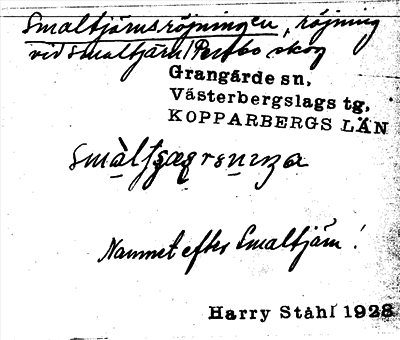 Smaltjärnsröjningen, röjning
vid Smaltjärn, Persbo skog
Grangärde sn,
Västerbergslags tg,
KOPPARBERGS LÄN
Namnet efter Smaltjärn!
Harry Ståhl 1928